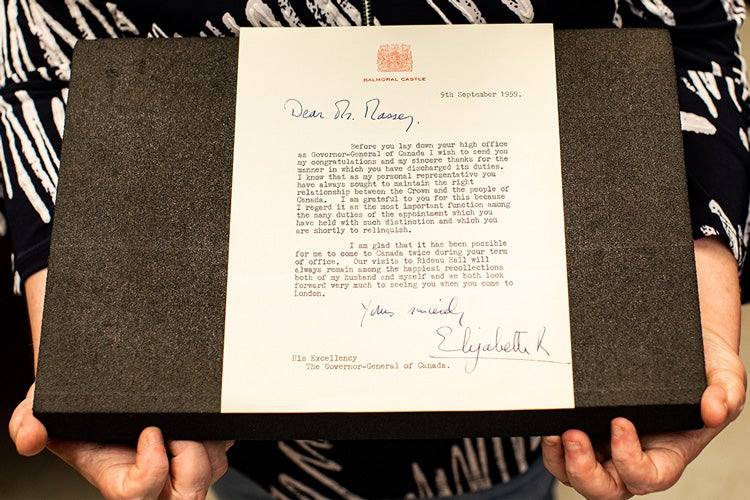 BALMORAL CASTLE
9th September 1959.
Dear Mr. Massey,
Before you lay down your high office
as Governor-General of Canada I wish to send you
my congratulations and my sincere thanks for the
manner in which you have discharged its duties.
I know that as my personal representative you
have always sought to maintain the right
relationship between the Crown and the people of
Canada. I am grateful to you for this because
I regard it as the most important function among
the many duties of the appointment which you
have held with such distinction and which you
are shortly to relinquish.
I am glad that it has been possible
for me to come to Canada twice during your term
of office. Our visits to Rideau Hall will
always remain among the happiest recollections
both of my husband and myself and we both look
forward very much to seeing you when you come to
London.
Yours sincerely
Elizabeth R
His Excellency
The Governor-General of Canada.